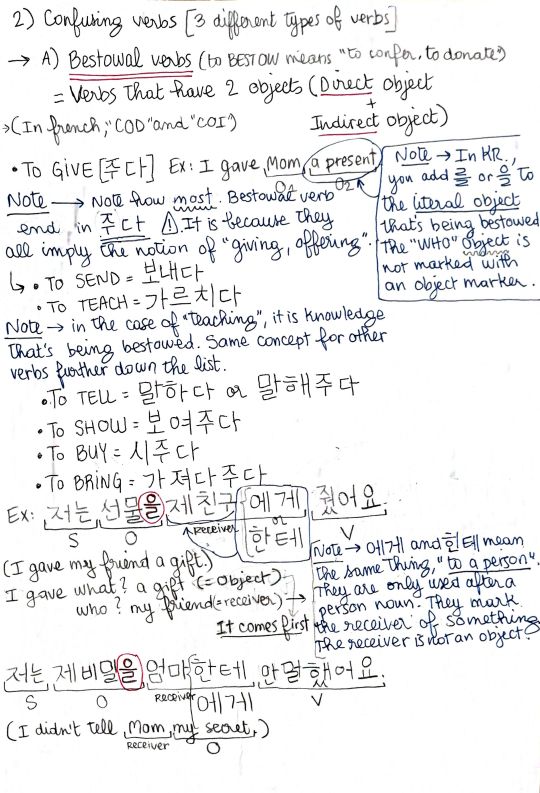 2) Confusing verbs [3 different types of verbs]
→ A) Bestowal verbs (to BESTOW means "to confer, to donate")
= Verbs that have 2 objects (Direct object
+
→(In french, "COD" and "COI") Indirect object)
• TO GIVE [주다] Ex: I gave Mom a present
O₁ O₂
Note → In KR.,
you add 를 or 을 to
the literal object
that's being bestowed
the "WHO" object is
not marked with
an object marker.
Note → Note how most Bestowal verb
end in 주다 ⚠ It is because they
all imply the notion of "giving, offering".
↳ • To SEND = 보내다
• To TEACH = 가르치다
Note → in the case of "teaching", it is knowledge
that's being bestowed. Same concept for other
verbs further down the list.
• To TELL = 말하다 or 말해주다
• To SHOW = 보여주다
• To BUY = 시주다
• To BRING = 가져다주다
Ex: 저는 선물을 제친구 에게 줬어요.
or
한테
S O RECEIVER V
(I gave my friend a gift.)
I gave what? a gift (= Object)
who? my friend (= receiver) →
It comes first
Note → 에게 and 한테 mean
the same thing, "to a person".
They are only used after a
person noun. They mark
the receiver of something
The receiver is not an object!
저는 제비밀을 엄마한테 안멀했어요.
에게
S O RECEIVER V
(I didn't tell Mom my secret.)
RECEIVER O